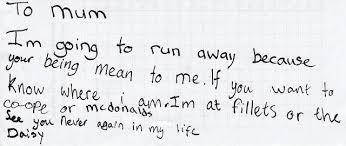 To mum
Im going to run away because
your being mean to me. If you want to
Know where i am. Im at fillets or the
co-ope or mcdonalds
See you never again in my life
Daisy